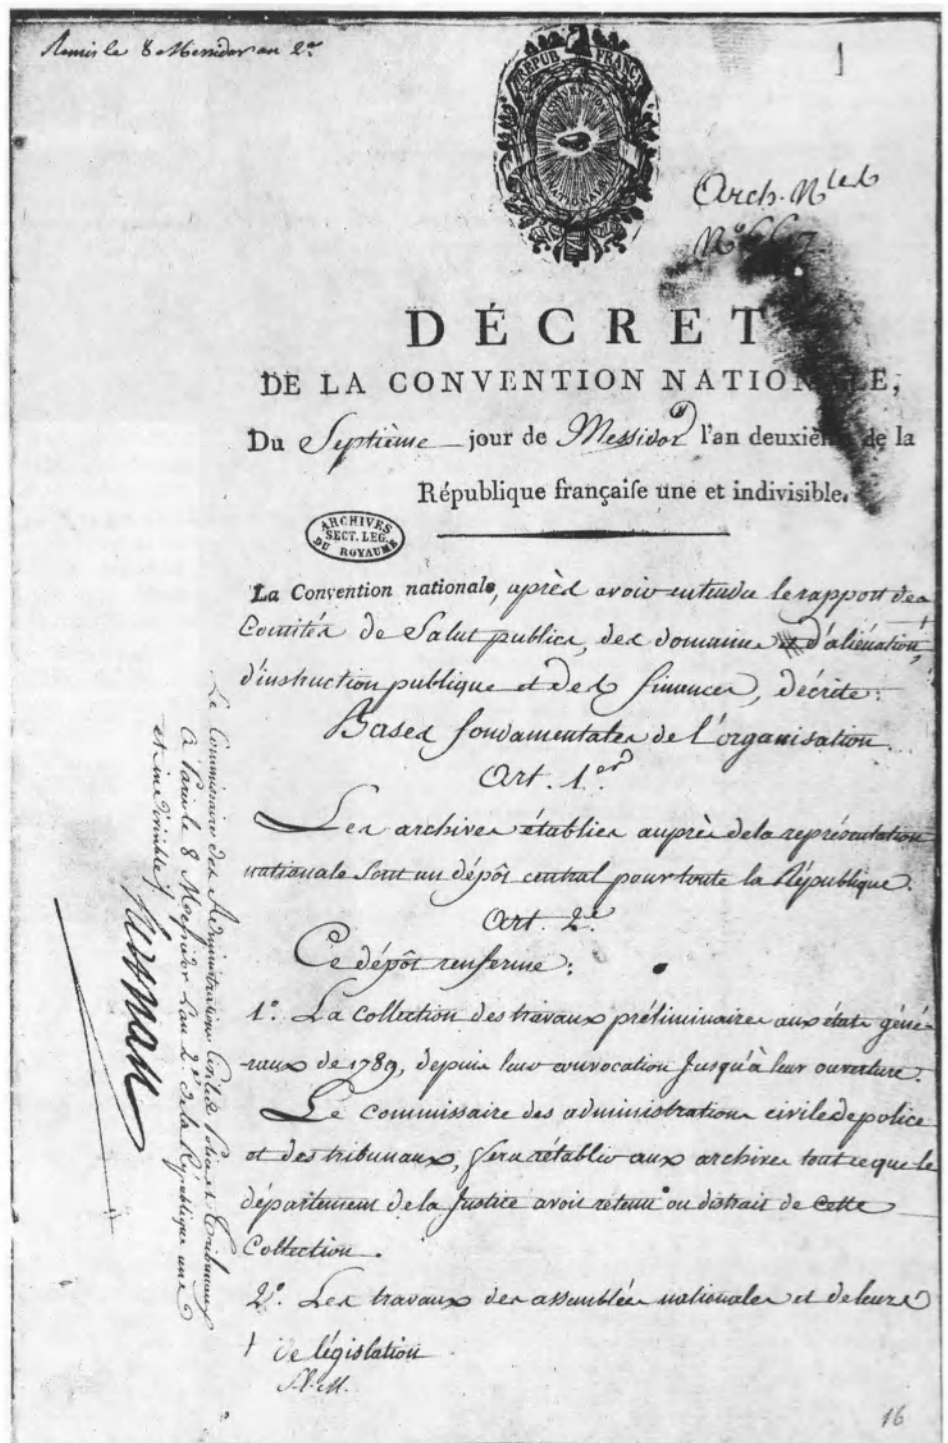 Remis le 8 Messidor an 2e
1
RÉPUB. FRANÇ.
CONVENTION
NATIONALE
Arch. Nles
N° 667.
DÉCRET
DE LA CONVENTION NATIONALE,
Du Septième jour de Messidor l'an deuxième de la
République françaiſe une et indivisible.
ARCHIVES
SECT. LEG.
DU ROYAUME
La Convention nationale, après avoir entendu le rapport des
Comités de Salut public, des domaines et d'aliénation, †
d'instruction publique et des finances, décrète:
Bases fondamentales de l'organisation.
Art. 1er
Les archives établies auprès de la représentation
nationale sont un dépôt central pour toute la République.
Art. 2e
Ce dépôt renferme:
1°. La collection des travaux préliminaires aux états géné-
-raux de 1789, depuis leur convocation jusqu'à leur ouverture.
Le commissaire des administrations civiles de police
et des tribunaux, fera rétablir aux archives tout ce que le
département de la Justice avoit retenu ou distrait de cette
Collection.
2°. Les travaux des assemblées nationales et de leurs
† de législation
16
Le Commissaire des Administrations Civiles Police et Tribunaux
A Paris le 8 Messidor l'an 2e de la République une
et indivisible.
Herman